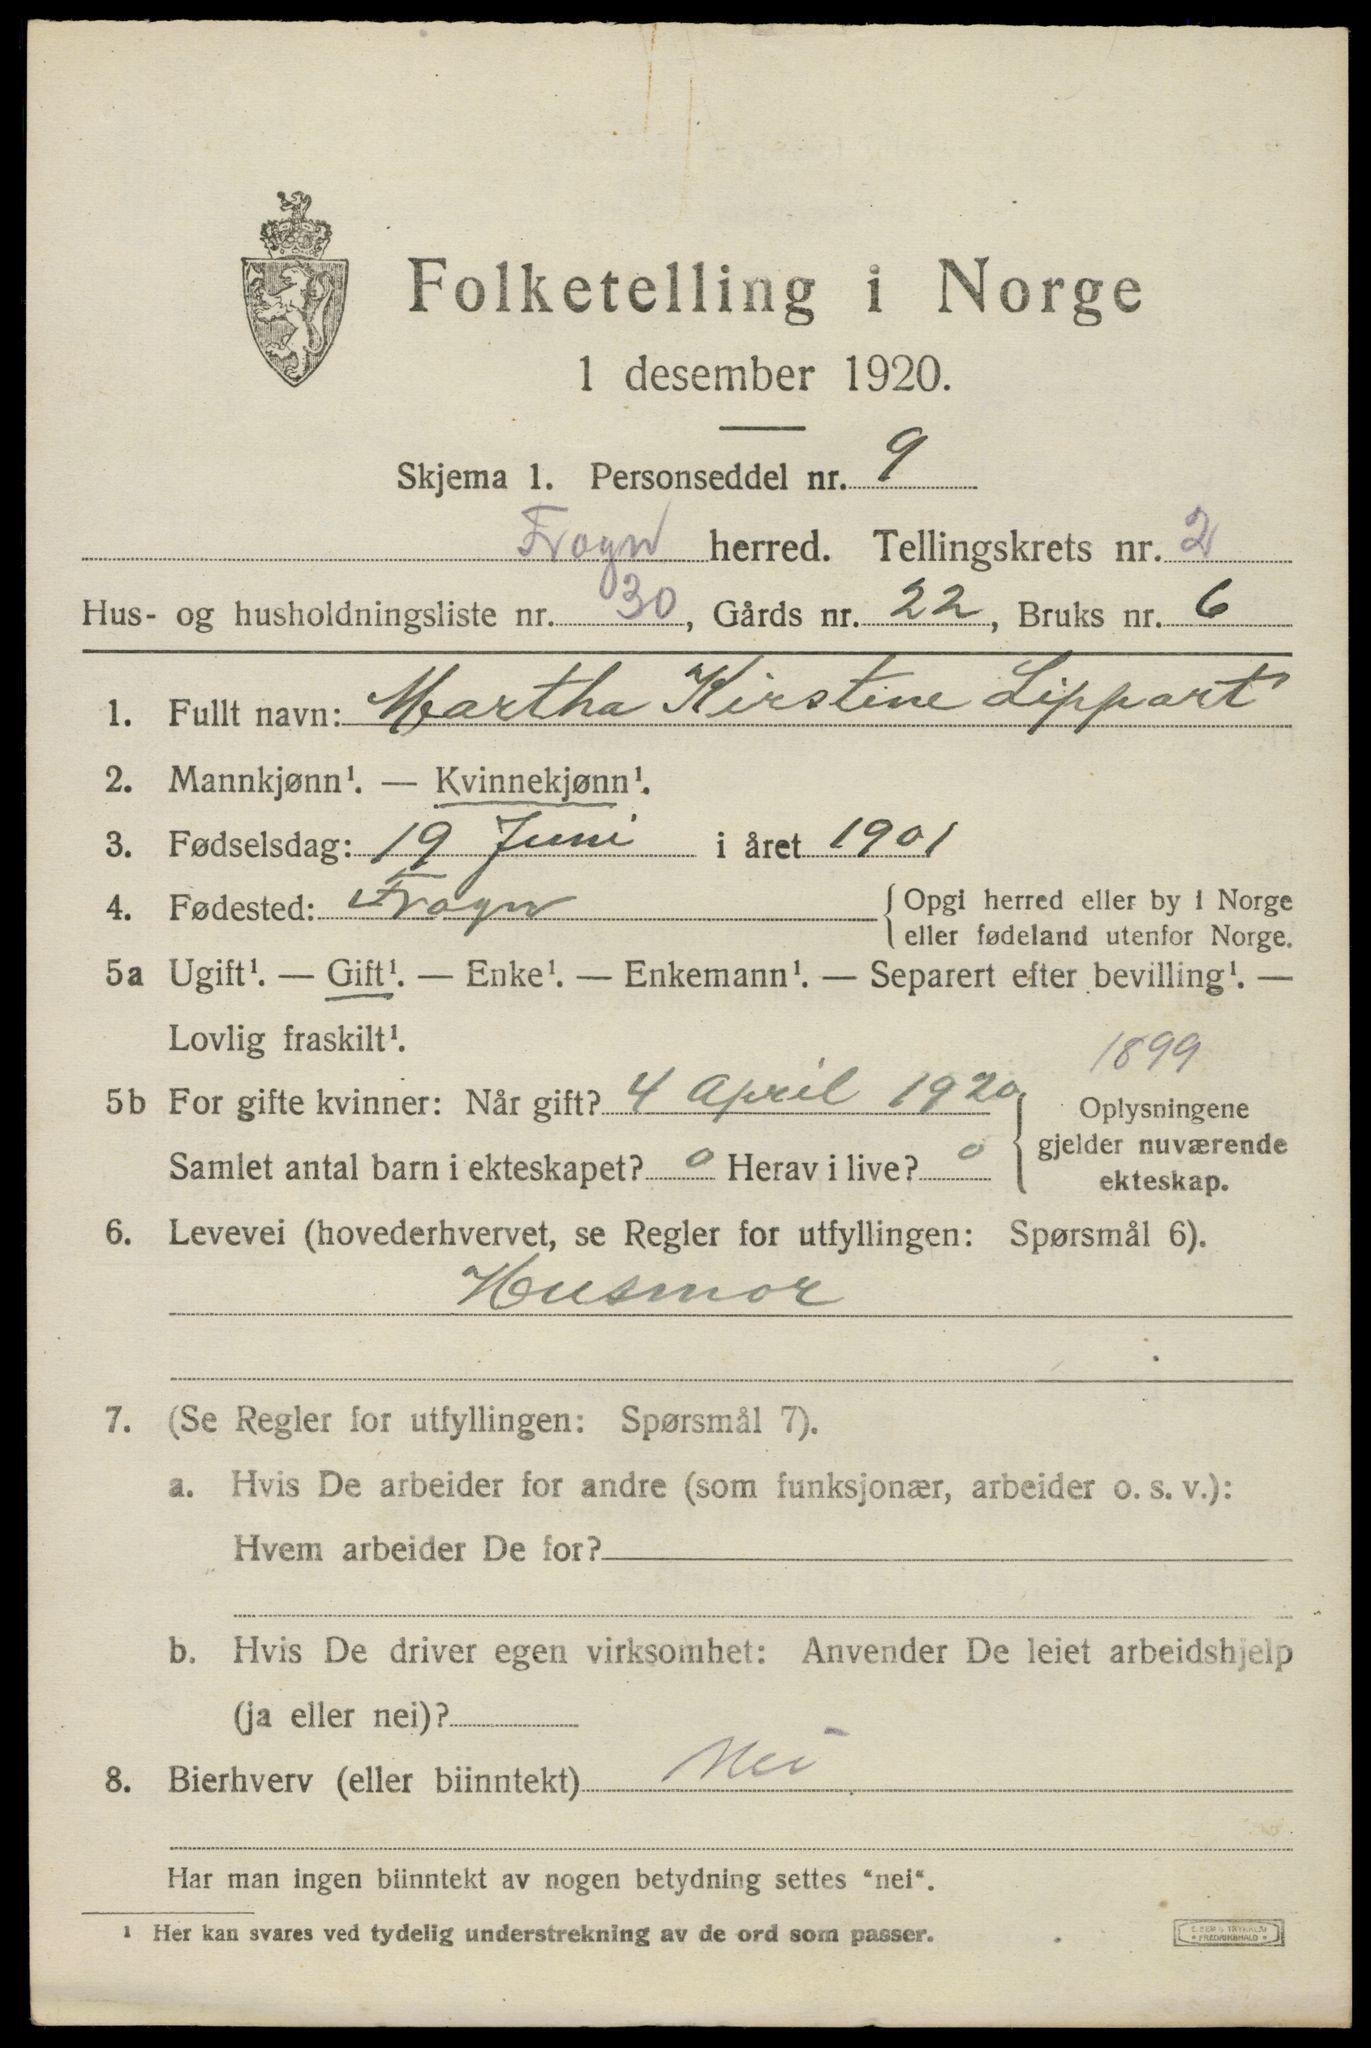 Folketelling i Norge
1 desember 1920.
Skjema 1. Personseddel nr. 9
Frogn herred. Tellingskrets nr. 2
Hus- og husholdningsliste nr. 30, Gårds nr. 22, Bruks nr. 6
1. Fullt navn: Martha Kirstine Lippart
2. Mannkjønn¹. — Kvinnekjønn¹.
3. Fødselsdag: 19 Juni i året 1901
4. Fødested: Frogn {Opgi herred eller by i Norge
eller fødeland utenfor Norge.
5a Ugift¹. — Gift¹. — Enke¹. — Enkemann¹. — Separert efter bevilling¹. —
Lovlig fraskilt¹.
1899
5b For gifte kvinner: Når gift? 4 April 1920 { Oplysningene
gjelder nuværende
Samlet antal barn i ekteskapet? 0 Herav i live? 0
ekteskap.
6. Levevei (hovederhvervet, se Regler for utfyllingen: Spørsmål 6).
Husmor
7. (Se Regler for utfyllingen: Spørsmål 7).
a. Hvis De arbeider for andre (som funksjonær, arbeider o. s. v.):
Hvem arbeider De for?
b. Hvis De driver egen virksomhet: Anvender De leiet arbeidshjelp
(ja eller nei)?
8. Bierhverv (eller biinntekt) Nei
Har man ingen biinntekt av nogen betydning settes "nei".
¹ Her kan svares ved tydelig understrekning av de ord som passer.
FREDRIKSHALD